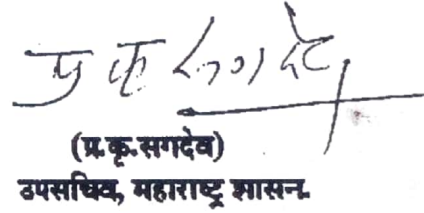 प्र कृ सगदेव
(प्र.कृ.सगदेव)
उपसचिव, महाराष्ट्र शासन.